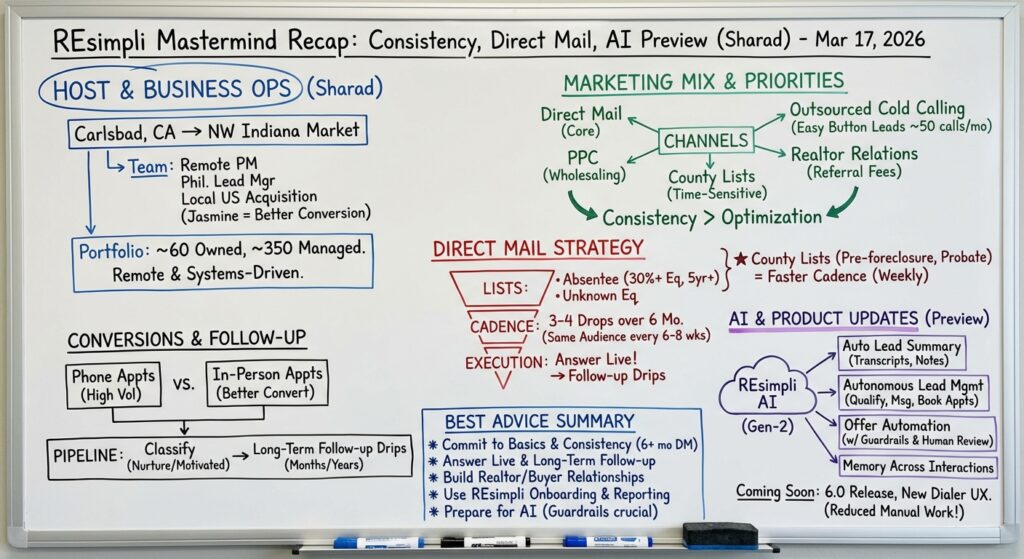 REsimpli Mastermind Recap: Consistency, Direct Mail, AI Preview (Sharad) - Mar 17, 2026
HOST & BUSINESS OPS (Sharad)
Carlsbad, CA → NW Indiana Market
Team: Remote PM
Phil. Lead Mgr
Local US Acquisition
(Jasmine = Better Conversion)
Portfolio: ~60 Owned, ~350 Managed.
Remote & Systems-Driven.
MARKETING MIX & PRIORITIES
CHANNELS
Direct Mail
(Core)
PPC
(Wholesaling)
County Lists
(Time-Sensitive)
Outsourced Cold Calling
(Easy Button Leads ~50 calls/mo)
Realtor Relations
(Referral Fees)
Consistency > Optimization
DIRECT MAIL STRATEGY
LISTS: • Absentee (30%+ Eq, 5yr+)
• Unknown Eq
★ County Lists (Pre-foreclosure, Probate)
= Faster Cadence (Weekly)
CADENCE: 3-4 Drops over 6 Mo.
(Same Audience every 6-8 wks)
EXECUTION: Answer Live!
→ Follow-up Drips
CONVERSIONS & FOLLOW-UP
Phone Appts
(High Vol)
VS.
In-Person Appts
(Better Convert)
PIPELINE: Classify → Long-Term Follow-up Drips
(Nurture/Motivated) (Months/Years)
BEST ADVICE SUMMARY
* Commit to Basics & Consistency (6+ mo DM)
* Answer Live & Long-Term Follow-up
* Build Realtor/Buyer Relationships
* Use REsimpli Onboarding & Reporting
* Prepare for AI (Guardrails crucial)
AI & PRODUCT UPDATES (Preview)
REsimpli
AI
(Gen-2)
Auto Lead Summary
(Transcripts, Notes)
Autonomous Lead Mgmt
(Qualify, Msg, Book Appts)
Offer Automation
(w/ Guardrails & Human Review)
Memory Across Interactions
Coming Soon: 6.0 Release, New Dialer UX.
(Reduced Manual Work!)